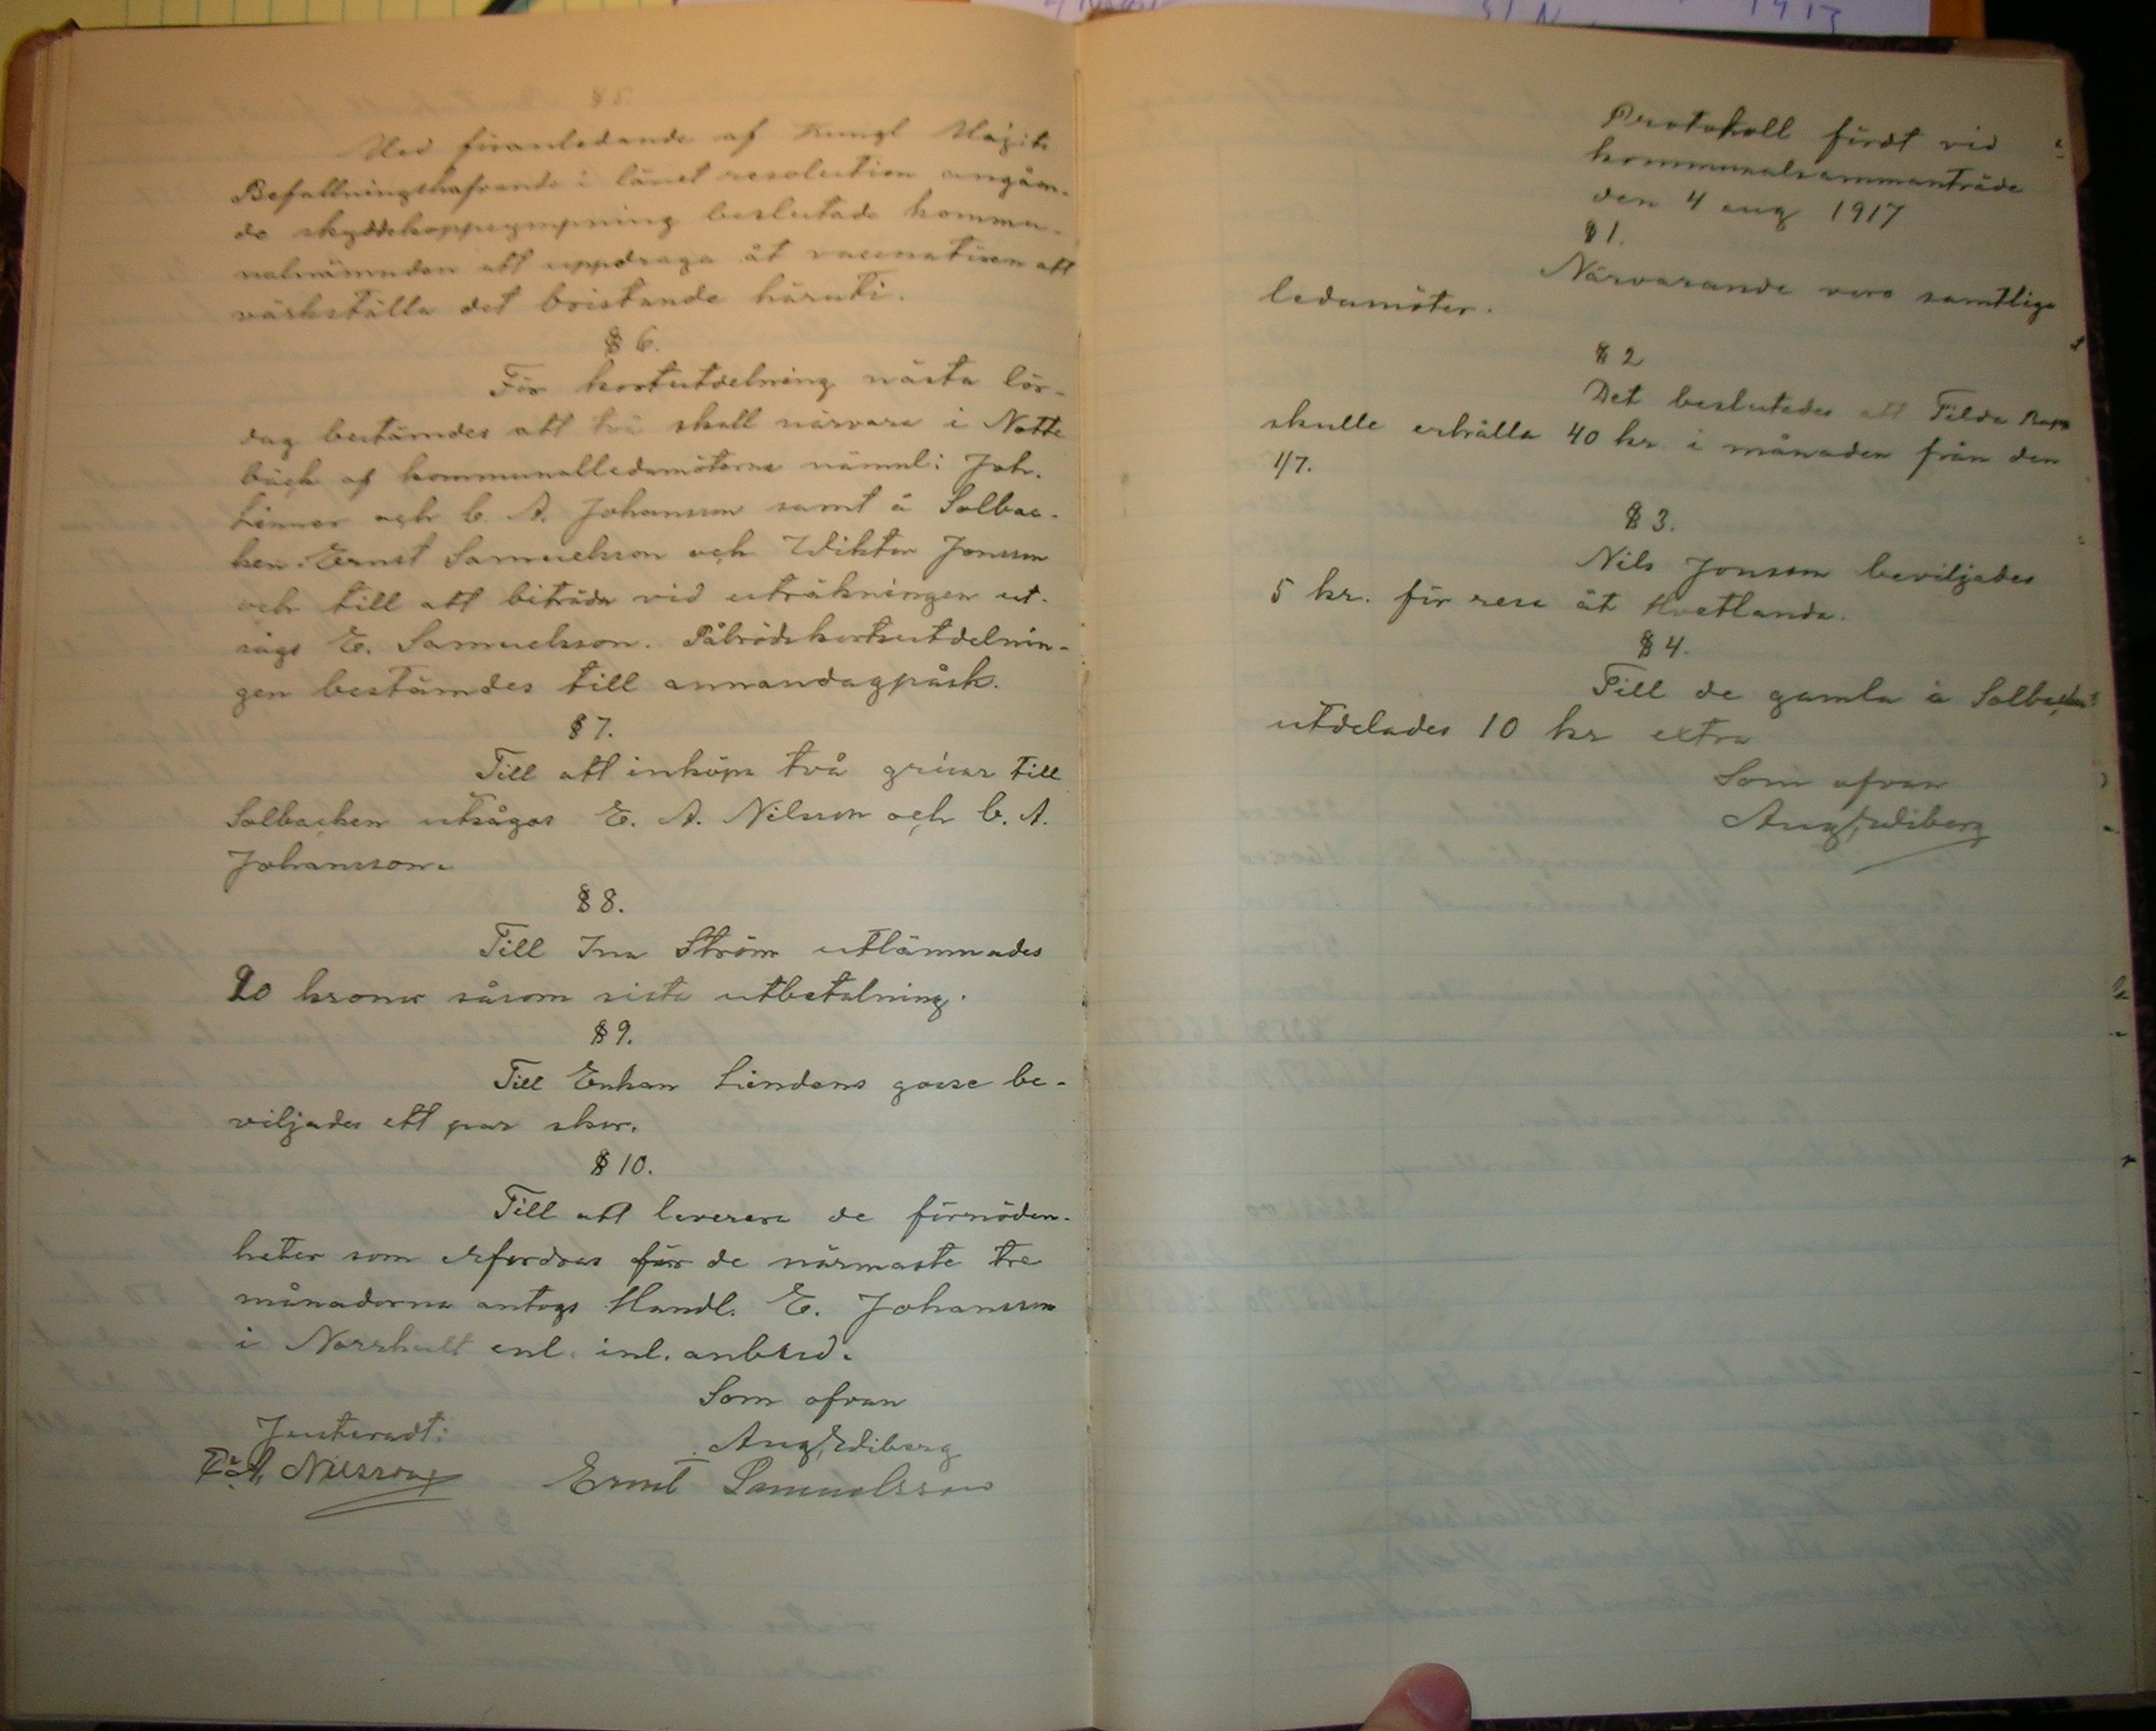 § 5.
Med föranledande af Kungl Majits
Befallningshafvande i länet resolution angåen-
de skyddskoppympning beslutade kommu-
nalnämnden att uppdraga åt vaccinatisen att
värkställa det bristande häruti.
§ 6.
För kortutdelning nästa lör-
dag bestämdes att två skall närvara i Notte
bäck af kommunalledamöterna nämnl: Joh.
Linner och C. A. Johansson samt å Solbac-
ken Ernst Samuelsson och Wiktor Jonsson
och till att biträda vid uträkningen ut-
sågs E. Samuelsson. Påbrödskortsutdelnin-
gen bestämdes till annandagpåsk.
§ 7.
Till att inköpa två grisar till
Solbacken utsågos E. A. Nilsson och C. A.
Johansson.
§ 8.
Till Ina Ström utlämnades
20 kronor såsom sista utbetalning.
§ 9.
Till Enkan Lindens gosse be-
viljades ett par skor.
§ 10.
Till att leverera de förnöden-
heter som erfordras för de närmaste tre
månaderna antogs Handl. E. Johansson
i Norrhult enl. inl. anbud.
Som ofvan
Justeradt: Aug, Wiberg
Nilsson Ernst Samuelsson
Protokoll fördt vid
kommunalsammanträde
den 4 aug 1917
§ 1.
Närvarande voro samtliga
ledamöter.
§ 2
Det beslutades att Tilda
skulle erhålla 40 kr i månaden från den
1/7.
§ 3.
Nils Jonsson beviljades
5 kr. för resa åt Hvetlanda.
§ 4.
Till de gamla å Solbacken
utdelades 10 kr extra
Som ofvan
Aug, Wiberg